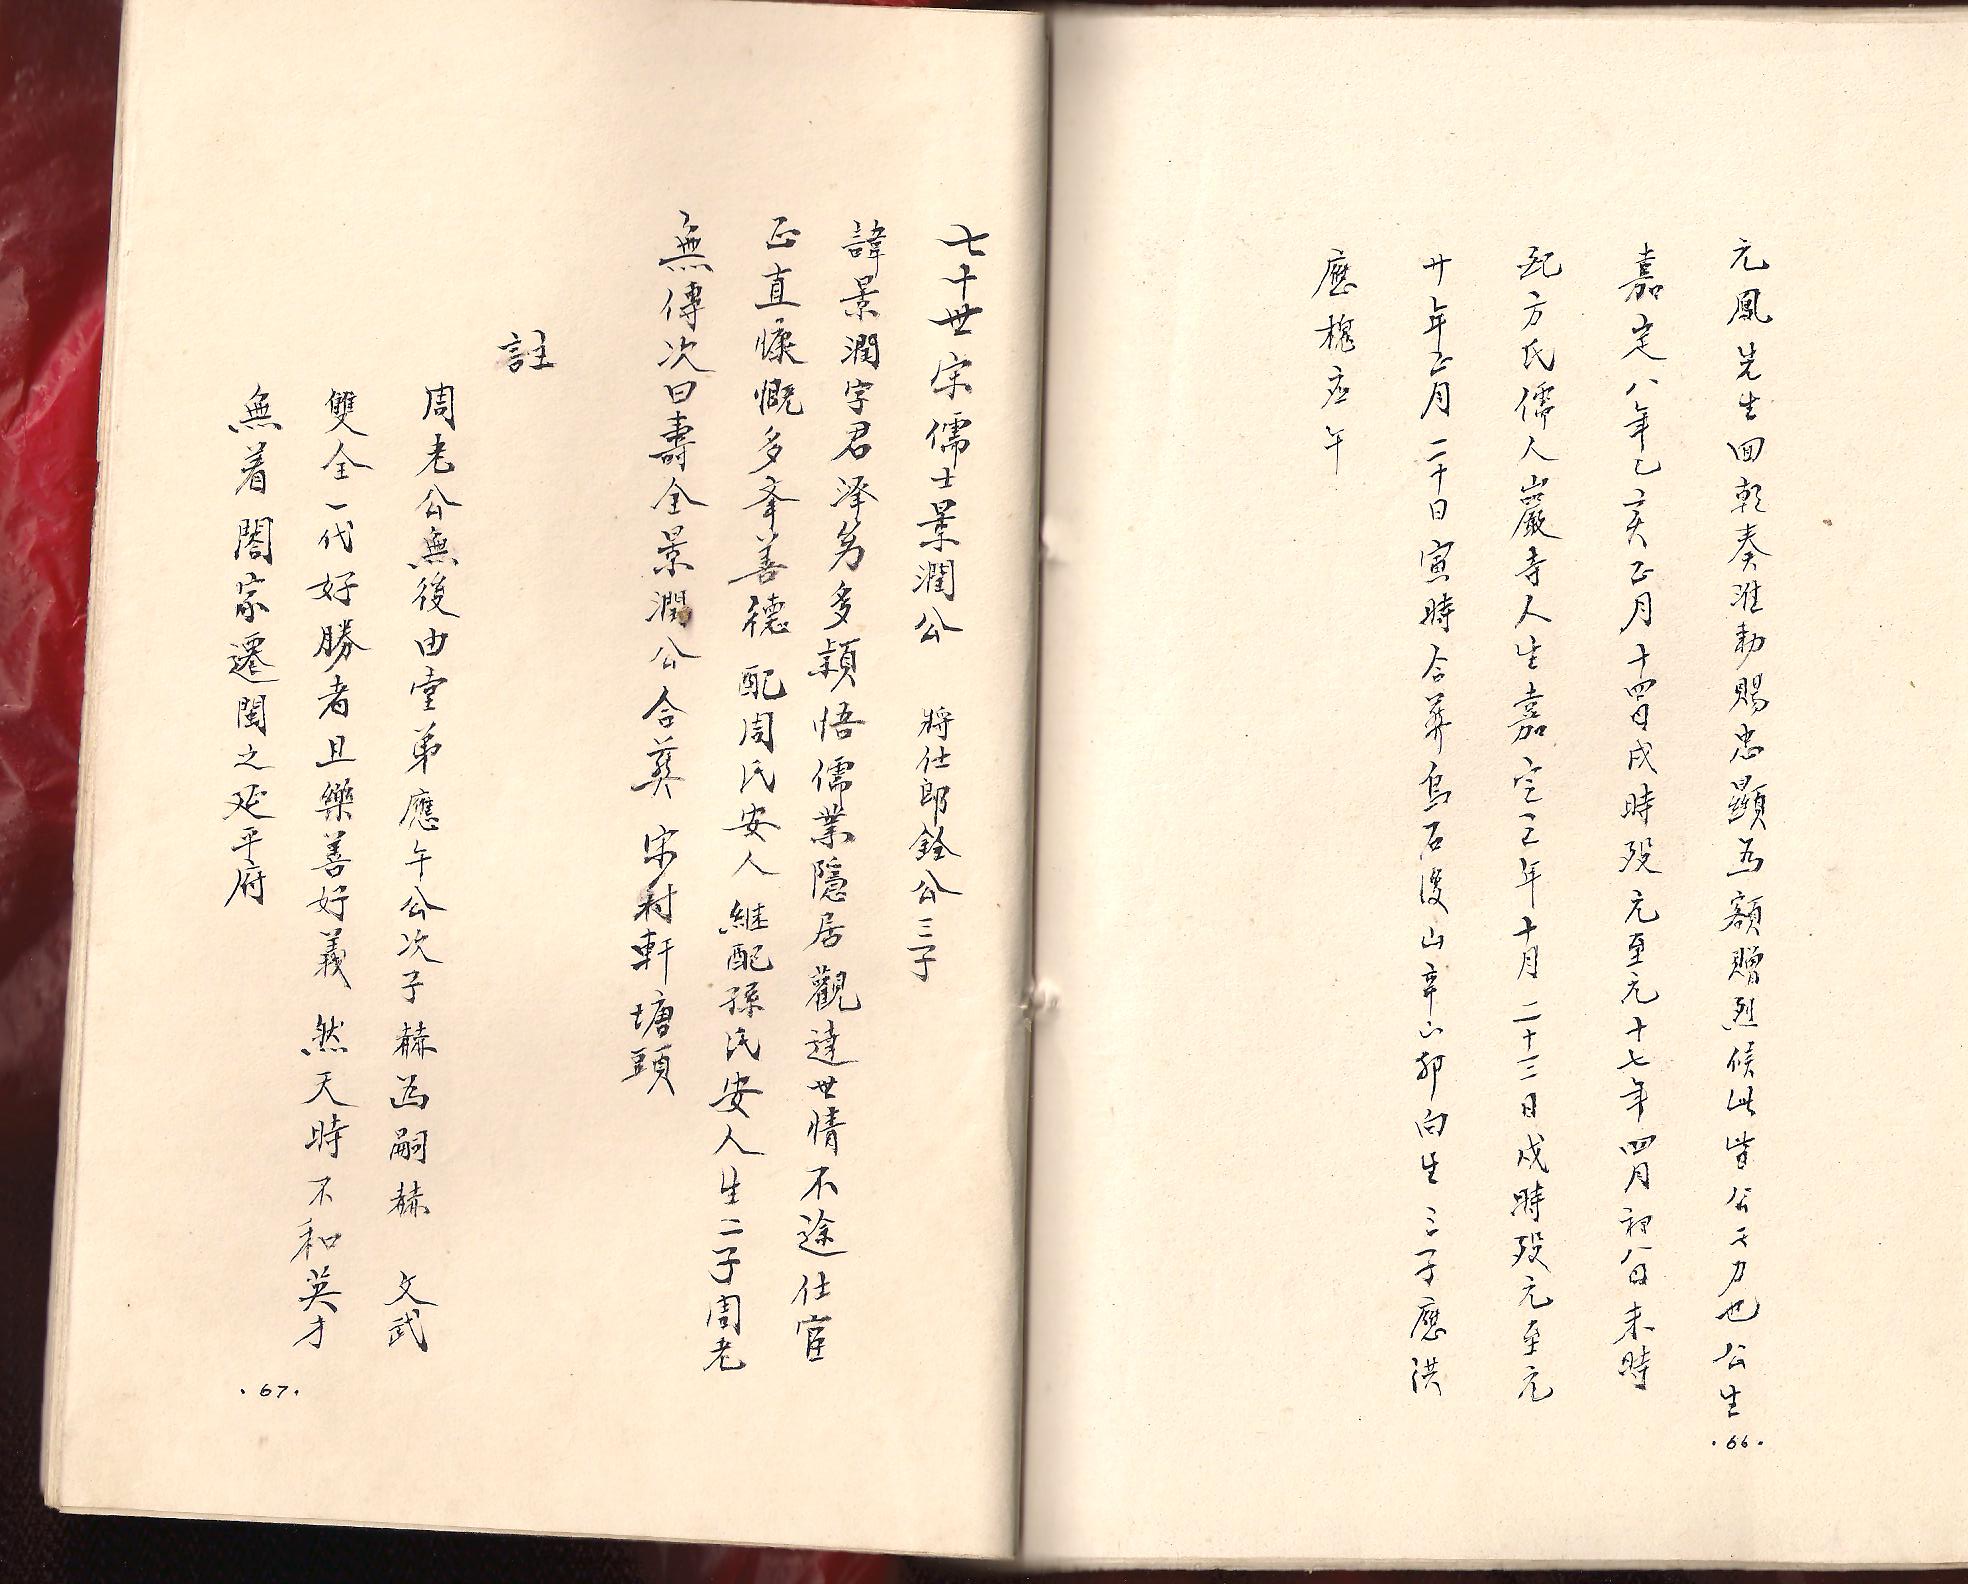 元鳳先生回乾奏准勅賜忠顯為額贈烈候此皆公之力也公生
嘉定八年乙亥正月十四日戌時歿元至元十七年四月初八日未時
配方氏儒人巖寺人生嘉定三年十月二十三日戌時歿元至元
廿年正月二十日寅時合葬烏石後山辛山卯向生三子應洪
應槐应午
·66·
七十世宋儒士景潤公 將仕郎銓公三子
諱景潤字君澤為多穎悟儒業隱居觀達世情不途仕宦
正直慷慨多辛善德 配周氏安人 継配孫氏安人生二子周老
無傳次曰壽全景潤公合葬 宋村軒塘頭
註
周老公無後由堂弟應午公次子赫為嗣赫 文武
雙全一代好勝者且樂善好義 然天時不和英才
無着閤家遷閩之延平府
·67·